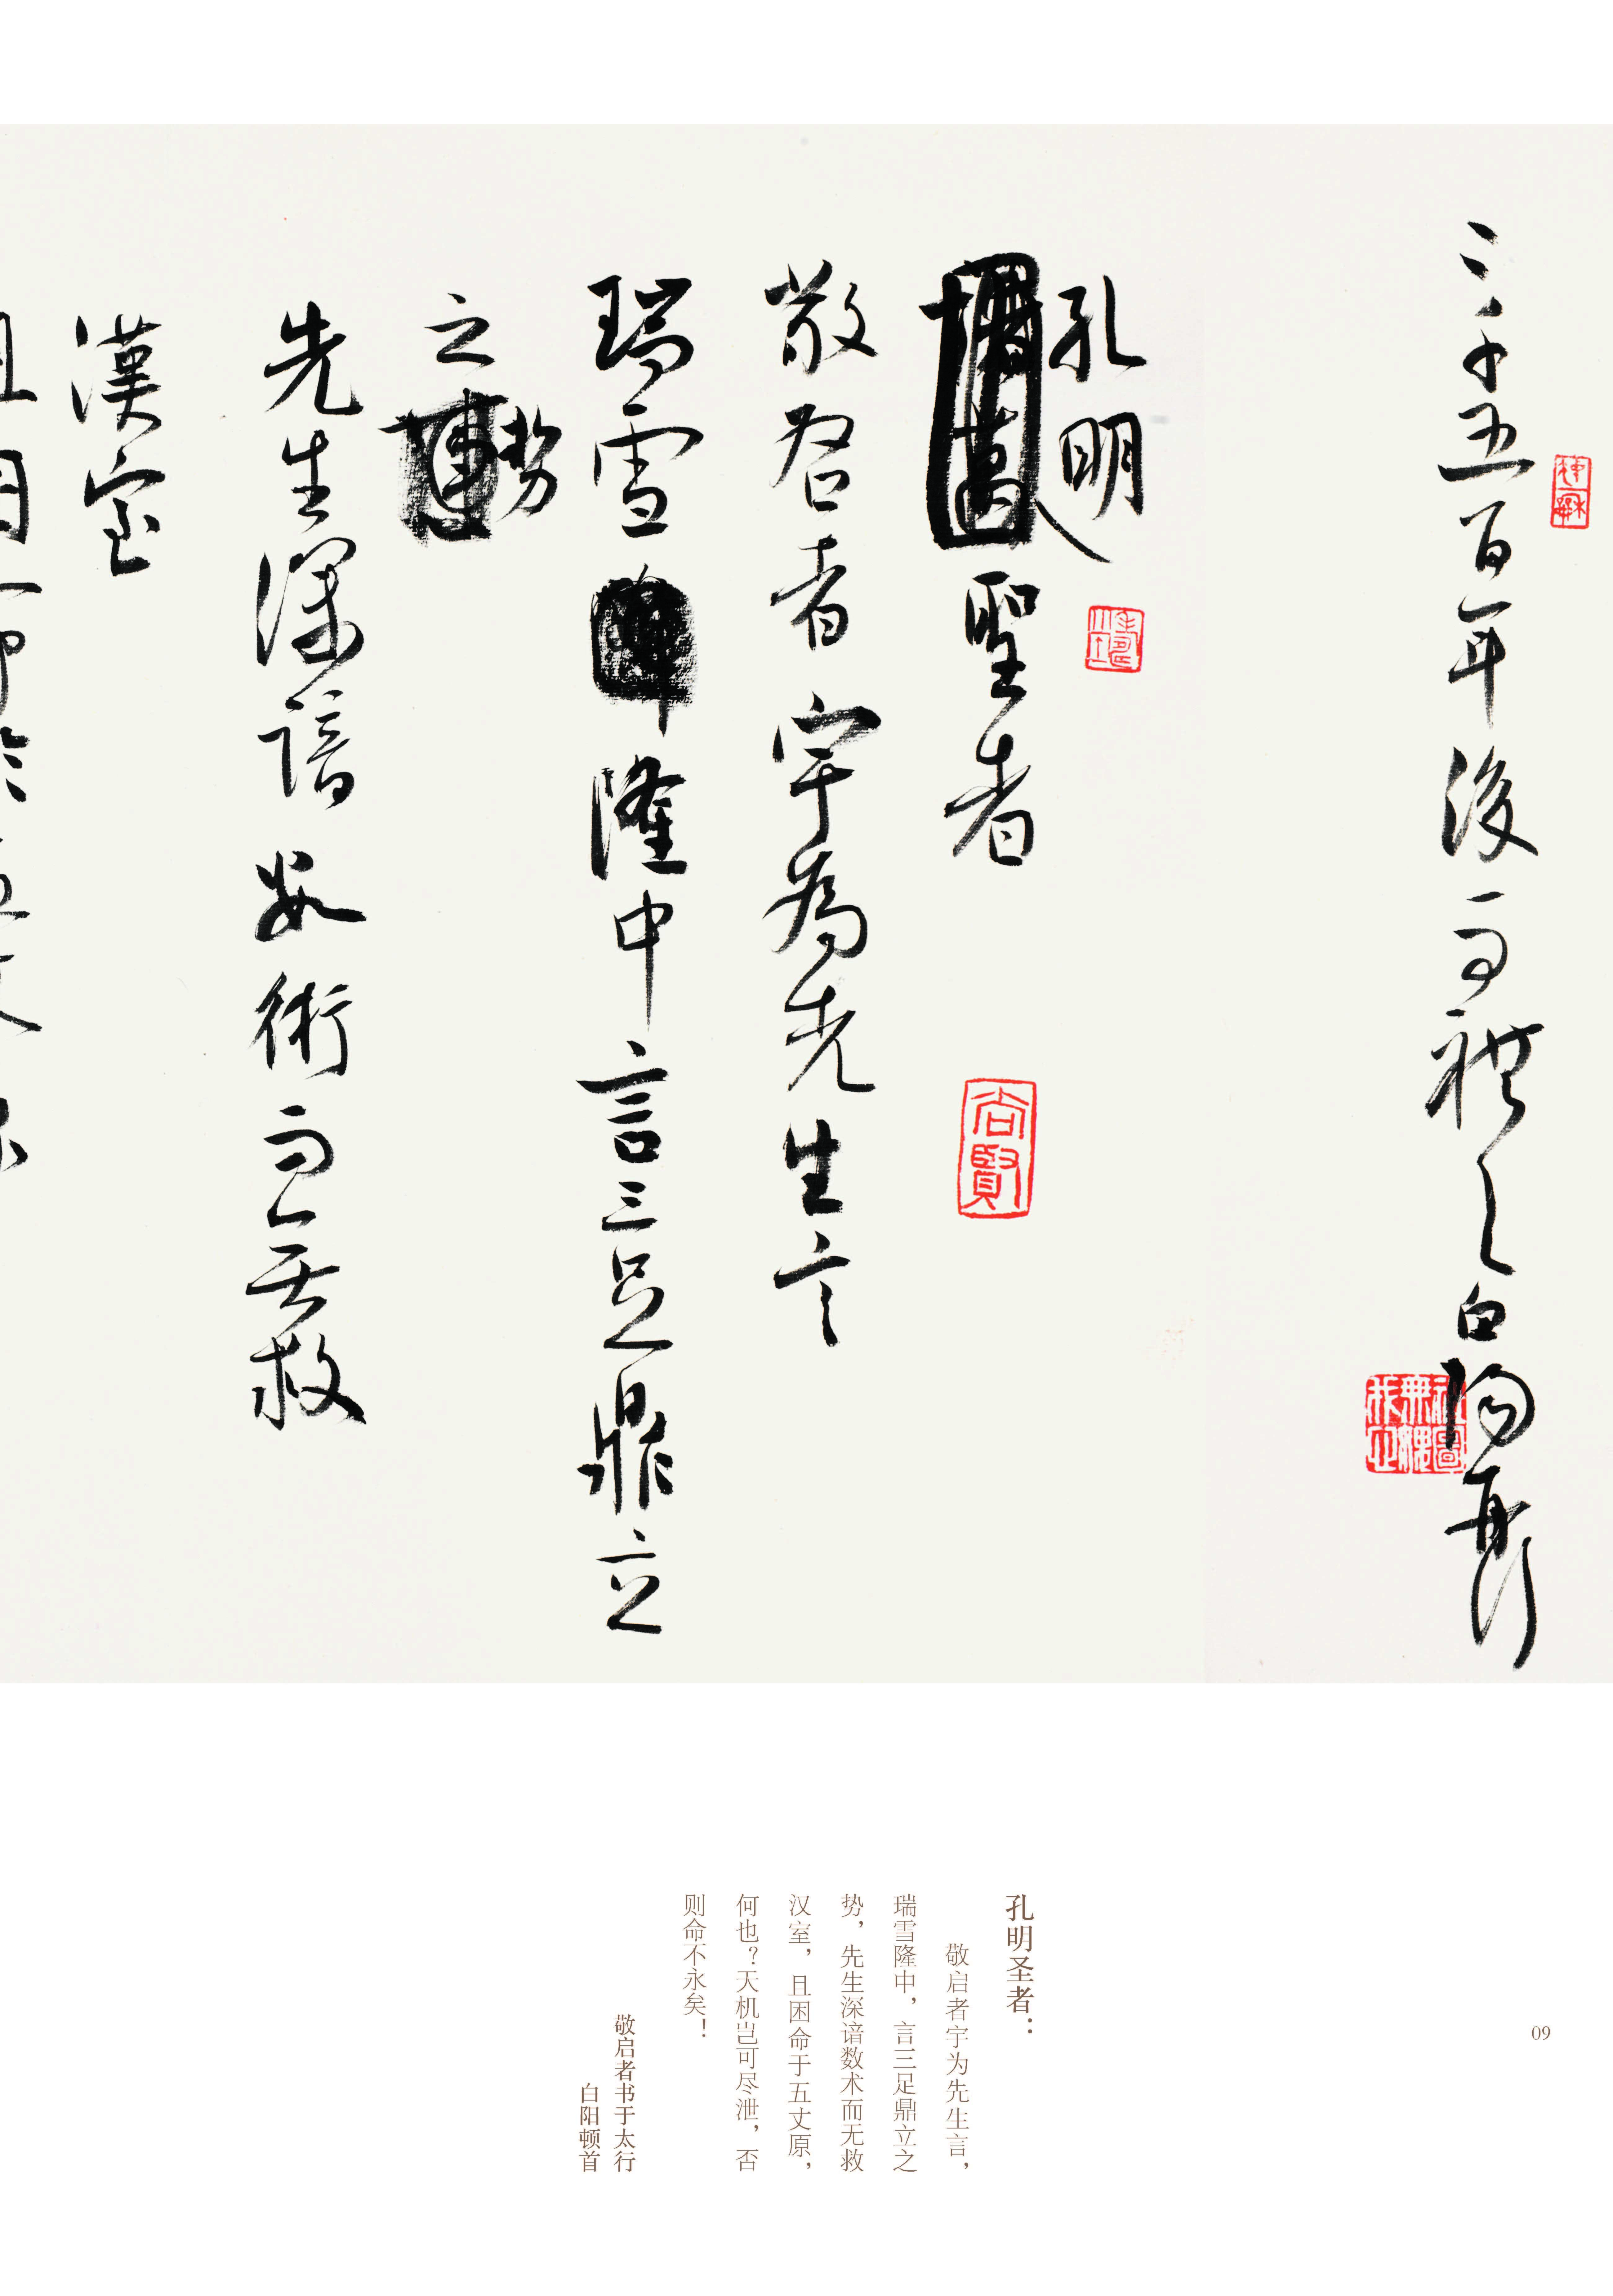 二千五百年後而禮之白陽
孔明
聖者
尚賢
敬启者宇為先生言
瑞雪隆中言三足鼎立
之勢
先生深諳数術而无救
漢室
孔明圣者：
敬启者宇为先生言，
瑞雪隆中，言三足鼎立之
势，先生深谙数术而无救
汉室，且困命于五丈原，
何也？天机岂可尽泄，否
则命不永矣！
敬启者书于太行
白阳顿首
09